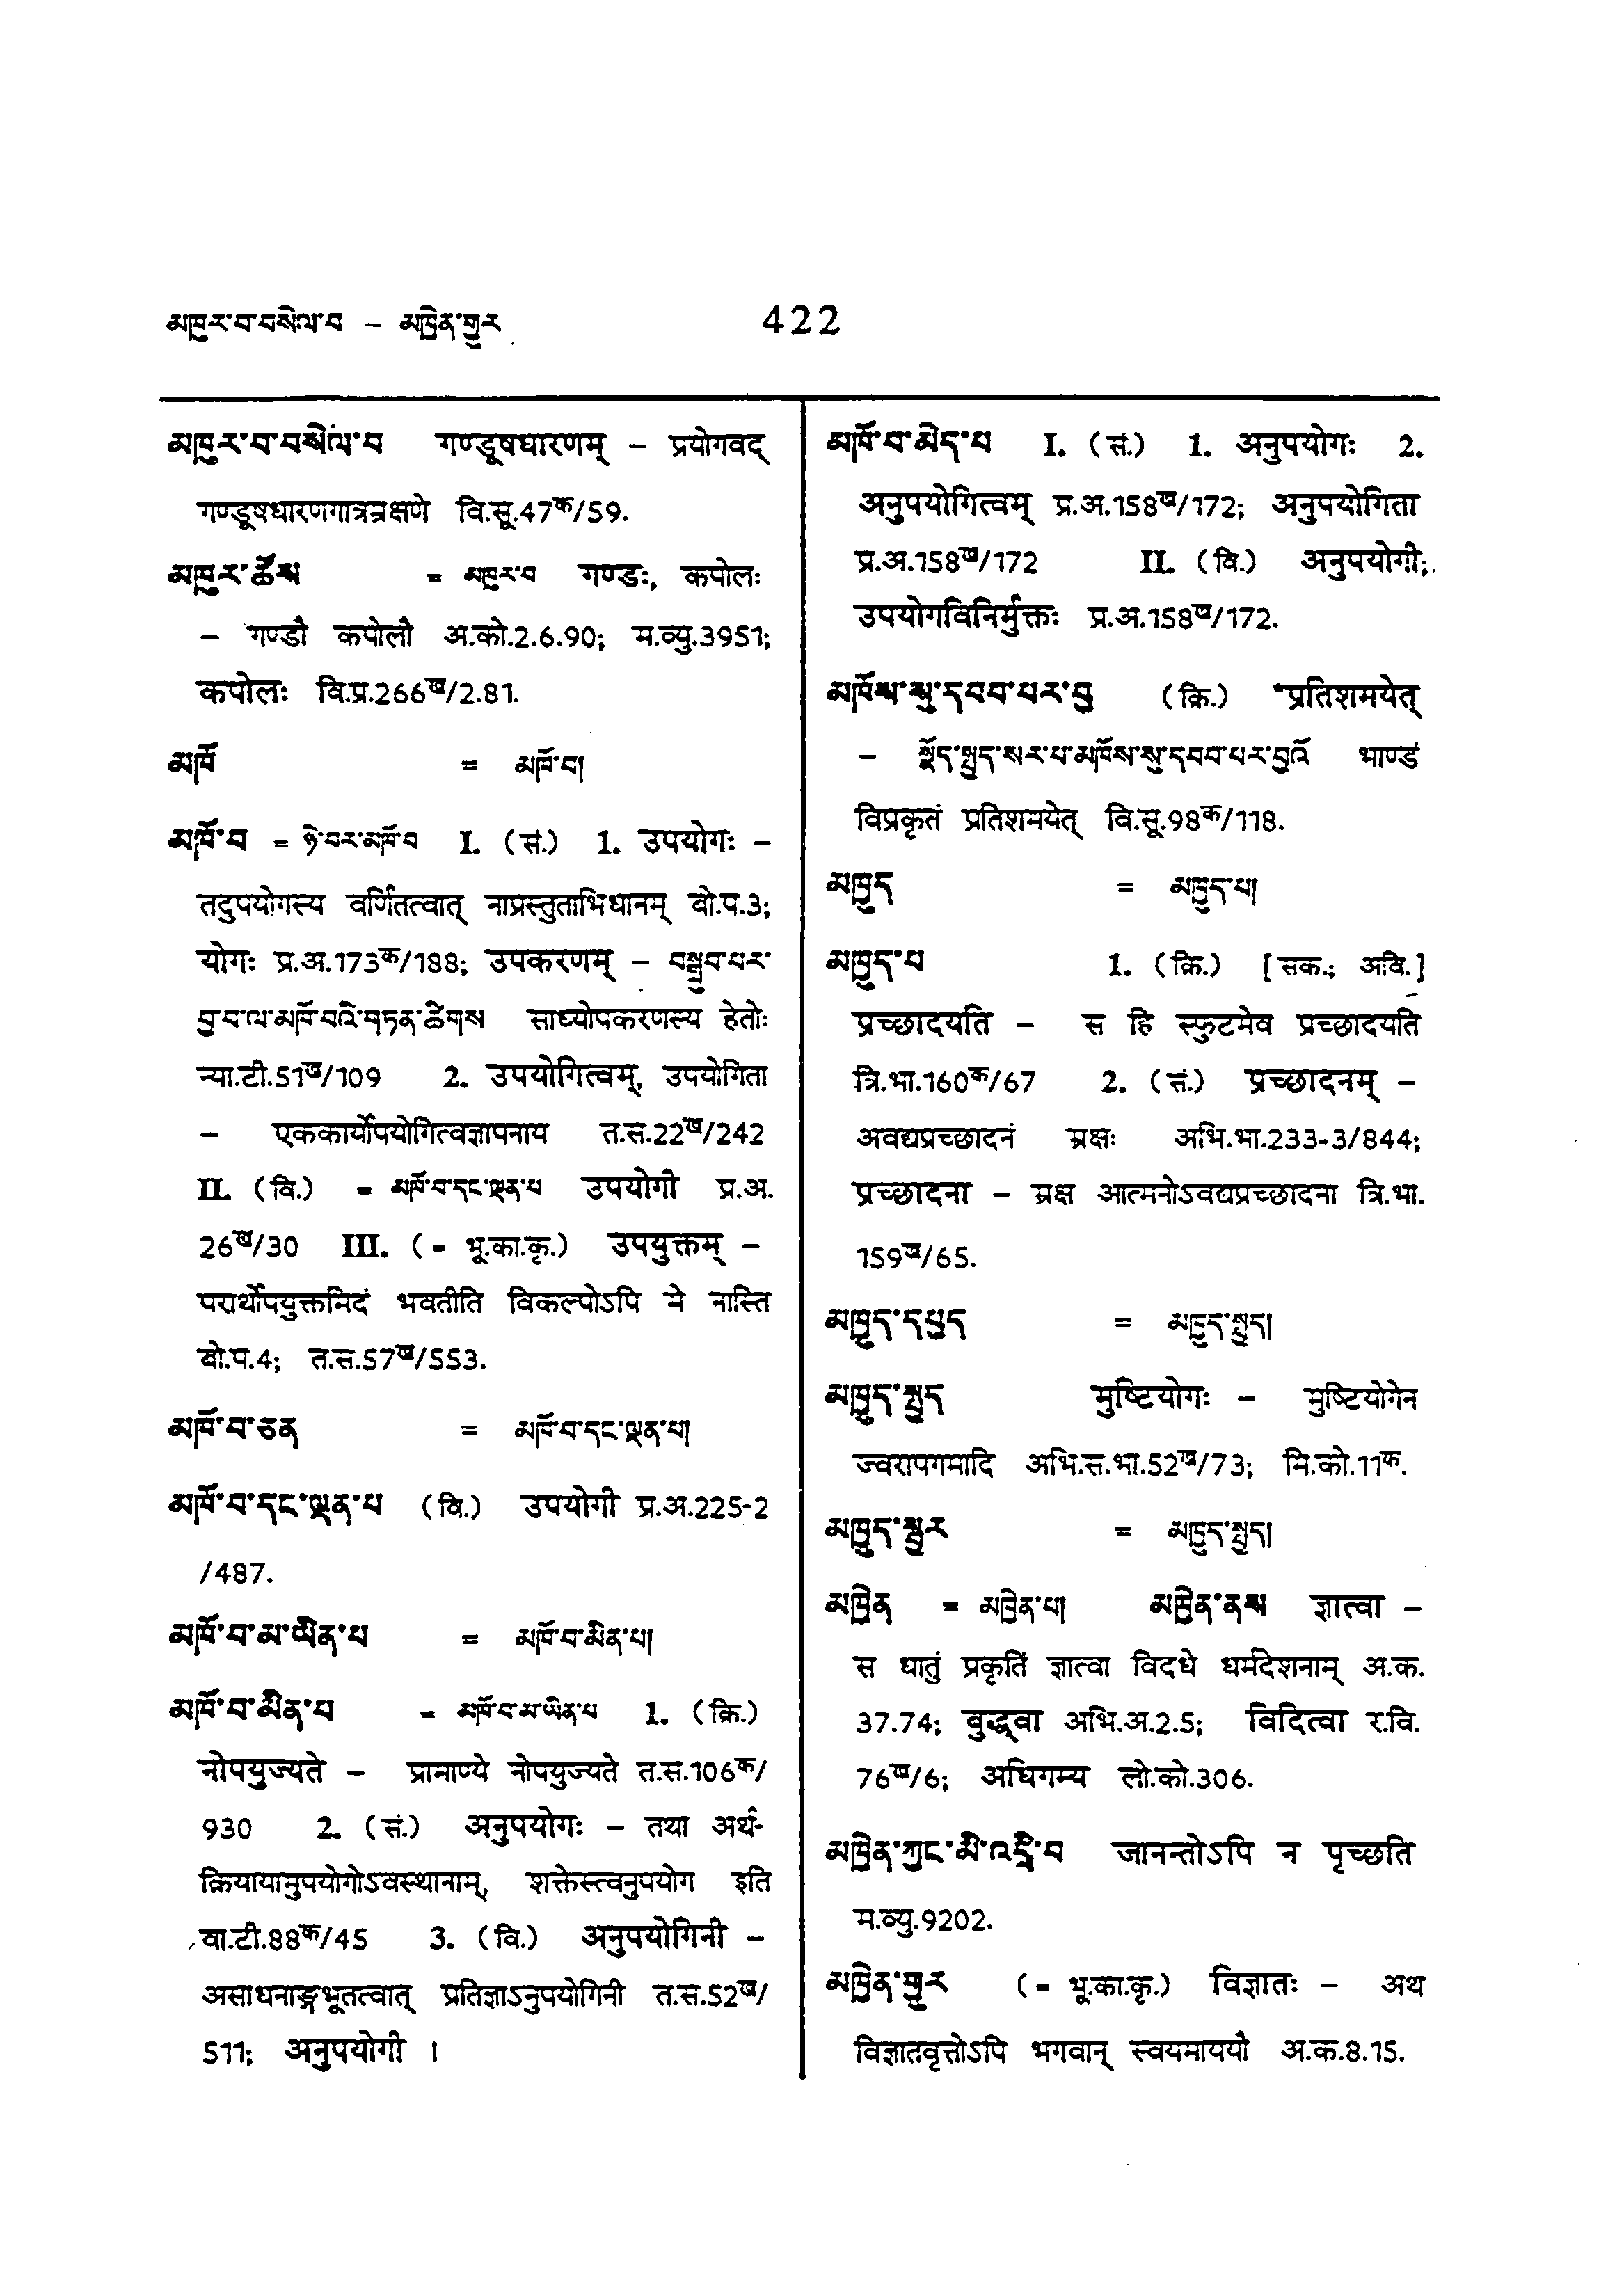 མཁུར་བ་བསེལ་བ – མཁྱེན་གྱུར
422
མཁུར་བ་བསེལ་བ गण्डूषधारणम् – प्रयोगवद्
गण्डूषधारणगात्रम्रक्षणे वि.सू.47क/59.
མཁུར་ཚོས = མཁུར་བ गण्डः, कपोलः
– गण्डौ कपोलौ अ.को.2.6.90; म.व्यु.3951;
कपोलः वि.प्र.266ख/2.81.
མཁོ = མཁོ་བ།
མཁོ་བ = ཉེ་བར་མཁོ་བ I. (सं.) 1. उपयोगः –
तदुपयोगस्य वर्णितत्वात् नाप्रस्तुताभिधानम् बो.प.3;
योगः प्र.अ.173क/188; उपकरणम् – བསྒྲུབ་པར་
བྱ་བ་ལ་མཁོ་བའི་གཏན་ཚིགས साध्योपकरणस्य हेतोः
न्या.टी.51ख/109 2. उपयोगित्वम्, उपयोगिता
– एककार्योपयोगित्वज्ञापनाय त.स.22ख/242
II. (वि.) = མཁོ་བ་དང་ལྡན་པ उपयोगी प्र.अ.
26ख/30 III. (= भू.का.कृ.) उपयुक्तम् –
परार्थोपयुक्तमिदं भवतीति विकल्पोऽपि मे नास्ति
बो.प.4; त.स.57ख/553.
མཁོ་བ་ཅན = མཁོ་བ་དང་ལྡན་པ།
མཁོ་བ་དང་ལྡན་པ (वि.) उपयोगी प्र.अ.225-2
/487.
མཁོ་བ་མ་ཡིན་པ = མཁོ་བ་མིན་པ།
མཁོ་བ་མིན་པ = མཁོ་བ་མ་ཡིན་པ 1. (क्रि.)
नोपयुज्यते – प्रामाण्ये नोपयुज्यते त.स.106क/
930 2. (सं.) अनुपयोगः – तथा अर्थ-
क्रियायामुपयोगोऽवस्थानाम्, शक्तेस्त्वनुपयोग इति
वा.टी.88क/45 3. (वि.) अनुपयोगिनी –
असाधनाङ्गभूतत्वात् प्रतिज्ञाऽनुपयोगिनी त.स.52ख/
511; अनुपयोगी ।
མཁོ་བ་མེད་པ I. (सं.) 1. अनुपयोगः 2.
अनुपयोगित्वम् प्र.अ.158ख/172; अनुपयोगिता
प्र.अ.158ख/172 II. (वि.) अनुपयोगी;
उपयोगविनिर्मुक्तः प्र.अ.158ख/172.
མཁོས་སུ་དབབ་པར་བྱ (क्रि.) *प्रतिशमयेत्
– སྣོད་སྤྱད་སར་པ་མཁོས་སུ་དབབ་པར་བྱའོ भाण्डं
विप्रकृतं प्रतिशमयेत् वि.सू.98क/118.
མཁྱུད = མཁྱུད་པ།
མཁྱུད་པ 1. (क्रि.) [सक.; अवि.]
प्रच्छादयति – स हि स्फुटमेव प्रच्छादयति
त्रि.भा.160क/67 2. (सं.) प्रच्छादनम् –
अवद्यप्रच्छादनं म्रक्षः अभि.भा.233-3/844;
प्रच्छादना – म्रक्ष आत्मनोऽवद्यप्रच्छादना त्रि.भा.
159ख/65.
མཁྱུད་དཔྱད = མཁྱུད་སྤྱད།
མཁྱུད་སྤྱད मुष्टियोगः – मुष्टियोगेन
ज्वरापगमादि अभि.स.भा.52ख/73; मि.को.11क.
མཁྱུད་སྦྱར = མཁྱུད་སྤྱད།
མཁྱེན = མཁྱེན་པ། མཁྱེན་ནས ज्ञात्वा –
स धातुं प्रकृतिं ज्ञात्वा विदधे धर्मदेशनाम् अ.क.
37.74; बुद्ध्वा अभि.अ.2.5; विदित्वा र.वि.
76ख/6; अधिगम्य लो.को.306.
མཁྱེན་ཀྱང་མི་འདྲི་བ जानन्तोऽपि न पृच्छति
म.व्यु.9202.
མཁྱེན་གྱུར (= भू.का.कृ.) विज्ञातः – अथ
विज्ञातवृत्तोऽपि भगवान् स्वयमाययौ अ.क.8.15.